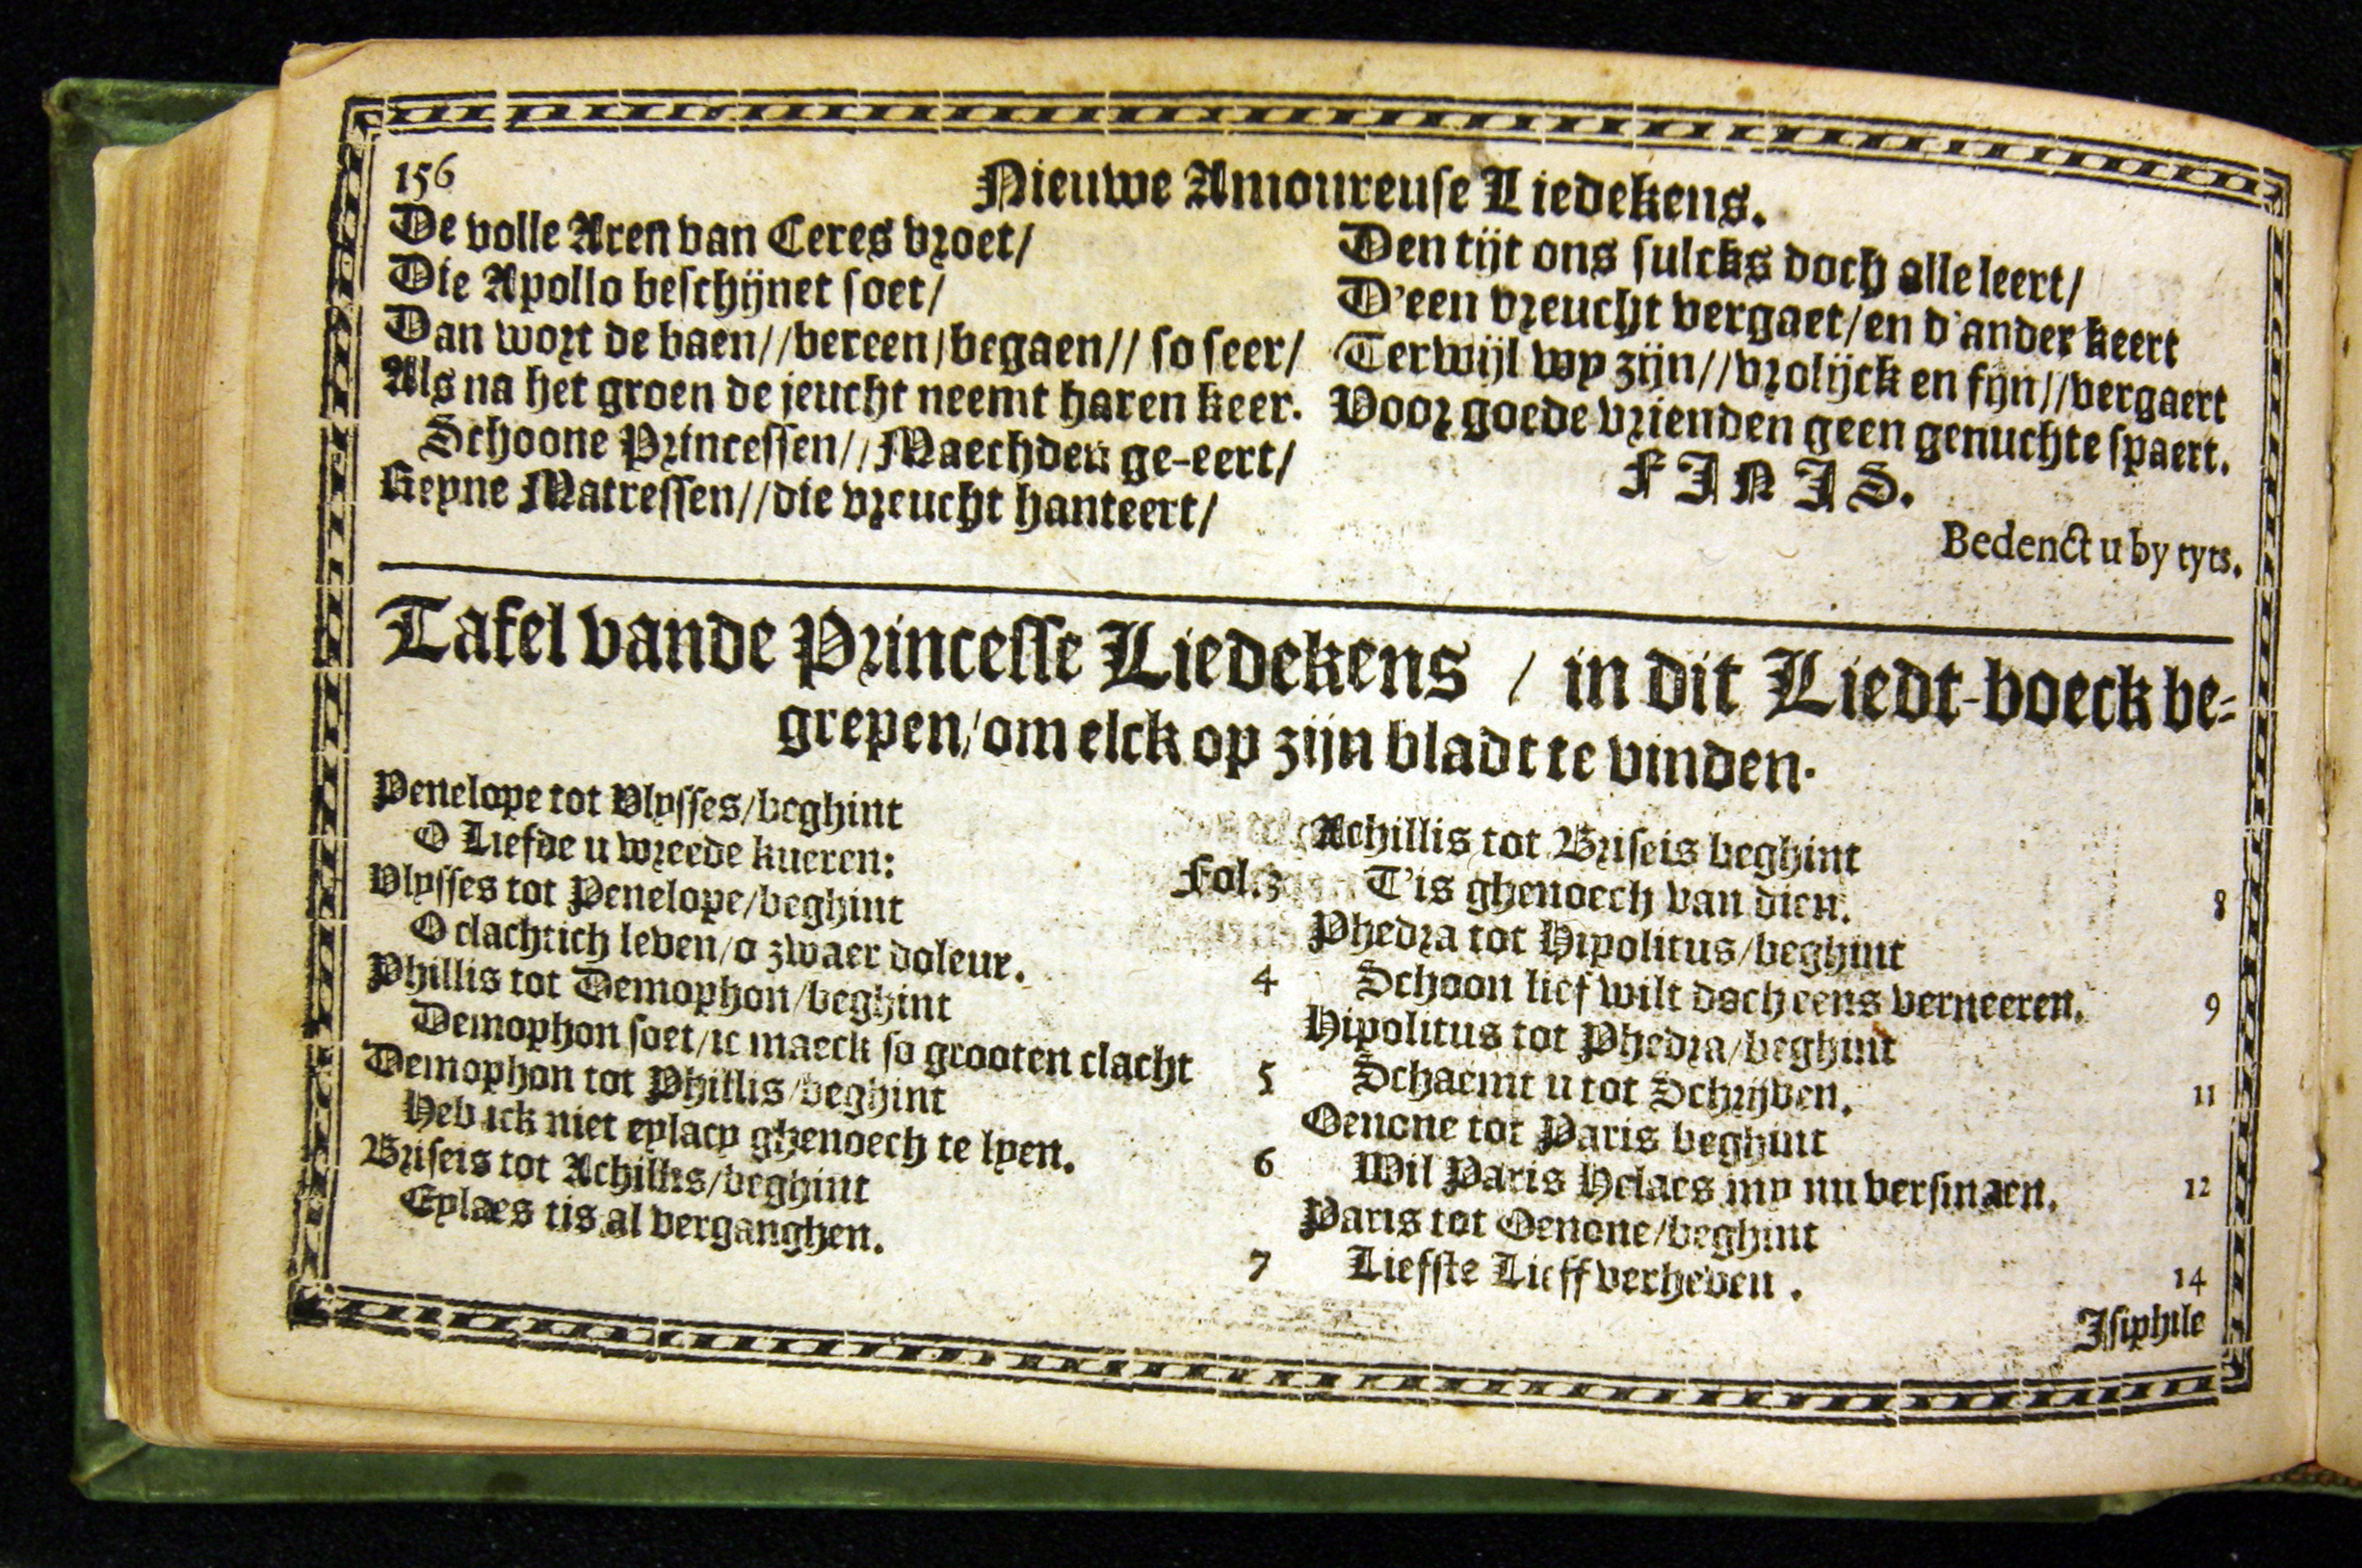 156
Nieuwe Amoureuse Liedekens.
De volle Aren van Ceres vroet/
Die Apollo beschijnet soet/
Dan wort de baen//bereen/begaen// so seer/
Als na het groen de jeucht neemt haren keer.
Schoone Princessen//Maechden ge-eert/
Reyne Matressen//die vreucht hanteert/
Den tijt ons sulcks doch alle leert/
D'een vreucht vergaet/en d'ander keert
Terwijl wy zijn//vrolijck en fijn//vergaert
Voor goede vrienden geen genuchte spaert.
FINIS.
Bedenct u by tyts.
Tafel vande Princesse Liedekens / in dit Liedt-boeck be-
grepen/om elck op zijn bladt te vinden.
Penelope tot Ulysses/beghint
O Liefde u wreede kueren: Fol.3
Ulysses tot Penelope/beghint
O clachtich leven/o zwaer doleur. 4
Phillis tot Demophon/beghint
Demophon soet/ic maeck so grooten clacht 5
Demophon tot Phillis/beghint
Heb ick niet eylacy ghenoech te lyen. 6
Briseis tot Achillis/beghint
Eylaes tis al verganghen. 7
Achillis tot Briseis beghint
T'is ghenoech van dien. 8
Phedra tot Hipolitus/beghint
Schoon lief wilt doch eens verneeren. 9
Hipolitus tot Phedra/beghint
Schaemt u tot Schrijven. 11
Oenone tot Paris beghint
Wil Paris Helaes my nu versmaen. 12
Paris tot Oenone/beghint
Liefste Lieff verheven. 14
Isiphile